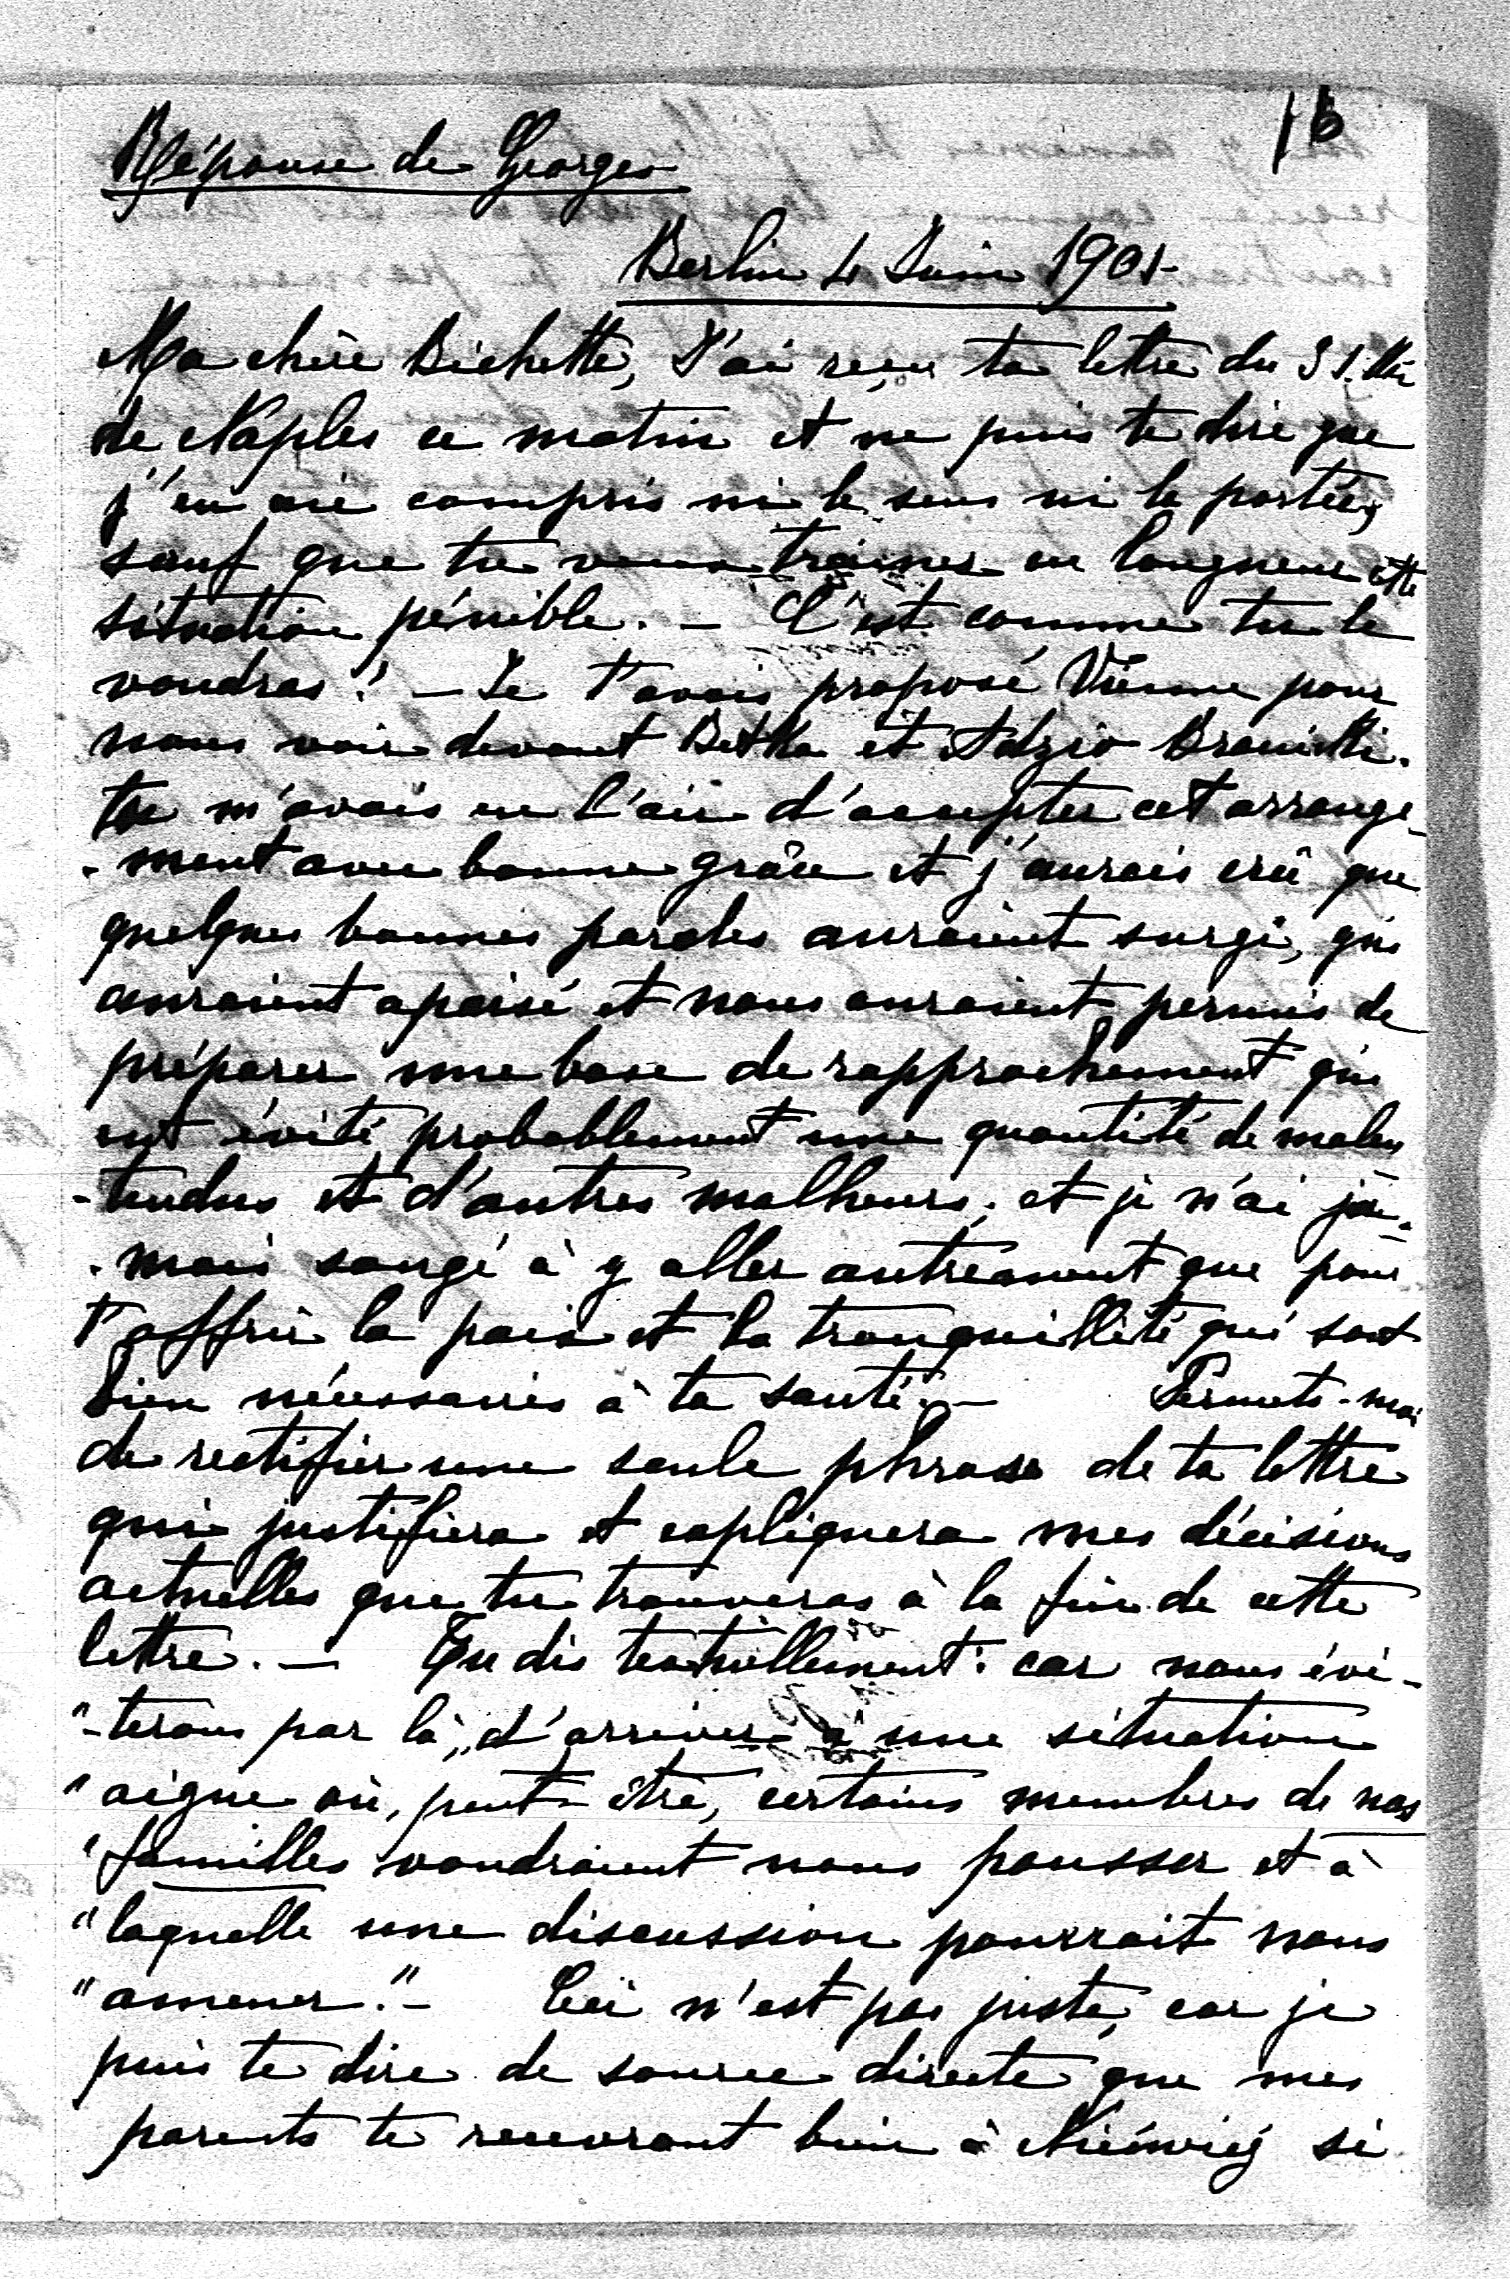 16
Réponse de Georges
Berlin 4 Juin 1901.
Ma chère Bichette, J'ai reçu ta lettre du 31. Mai
de Naples ce matin et ne puis te dire que
j'en aie compris ni le sens ni la portée,
sauf que tu veux traîner en longueur cette
situation pénible. — C'est comme tu le
voudras! — Je t'avais proposé Vienne pour
nous voir devant Betka et Adzio Braniski.
tu m'avais eu l'air d'accepter cet arrange-
-ment avec bonne grâce et j'aurais crû que
quelques bonnes paroles auraient surgi, qui
auraient apaisé et nous auraient permis de
préparer une base de rapprochement qui
eut évité probablement une quantité de malen
-tendus et d'autres malheurs; et je n'ai ja-
-mais songé à y aller autrement que pour
t'offrir la paix et la tranquillité qui sont
bien nécessaires à ta santé. — Permets-moi
de rectifier une seule phrase de ta lettre
qui justifiera et expliquera mes décisions
actuelles que tu trouveras à la fin de cette
lettre. — Tu dis textuellement: car nous évi-
"-terons par là, d'arriver à une situation
"aigue où, peut-être, certains membres de nos
"familles voudraient nous pousser et à
"laquelle une discussion pourrait nous
"amener." — Ceci n'est pas juste, car je
puis te dire de source directe que mes
parents te recevront bien à Nieśwież si